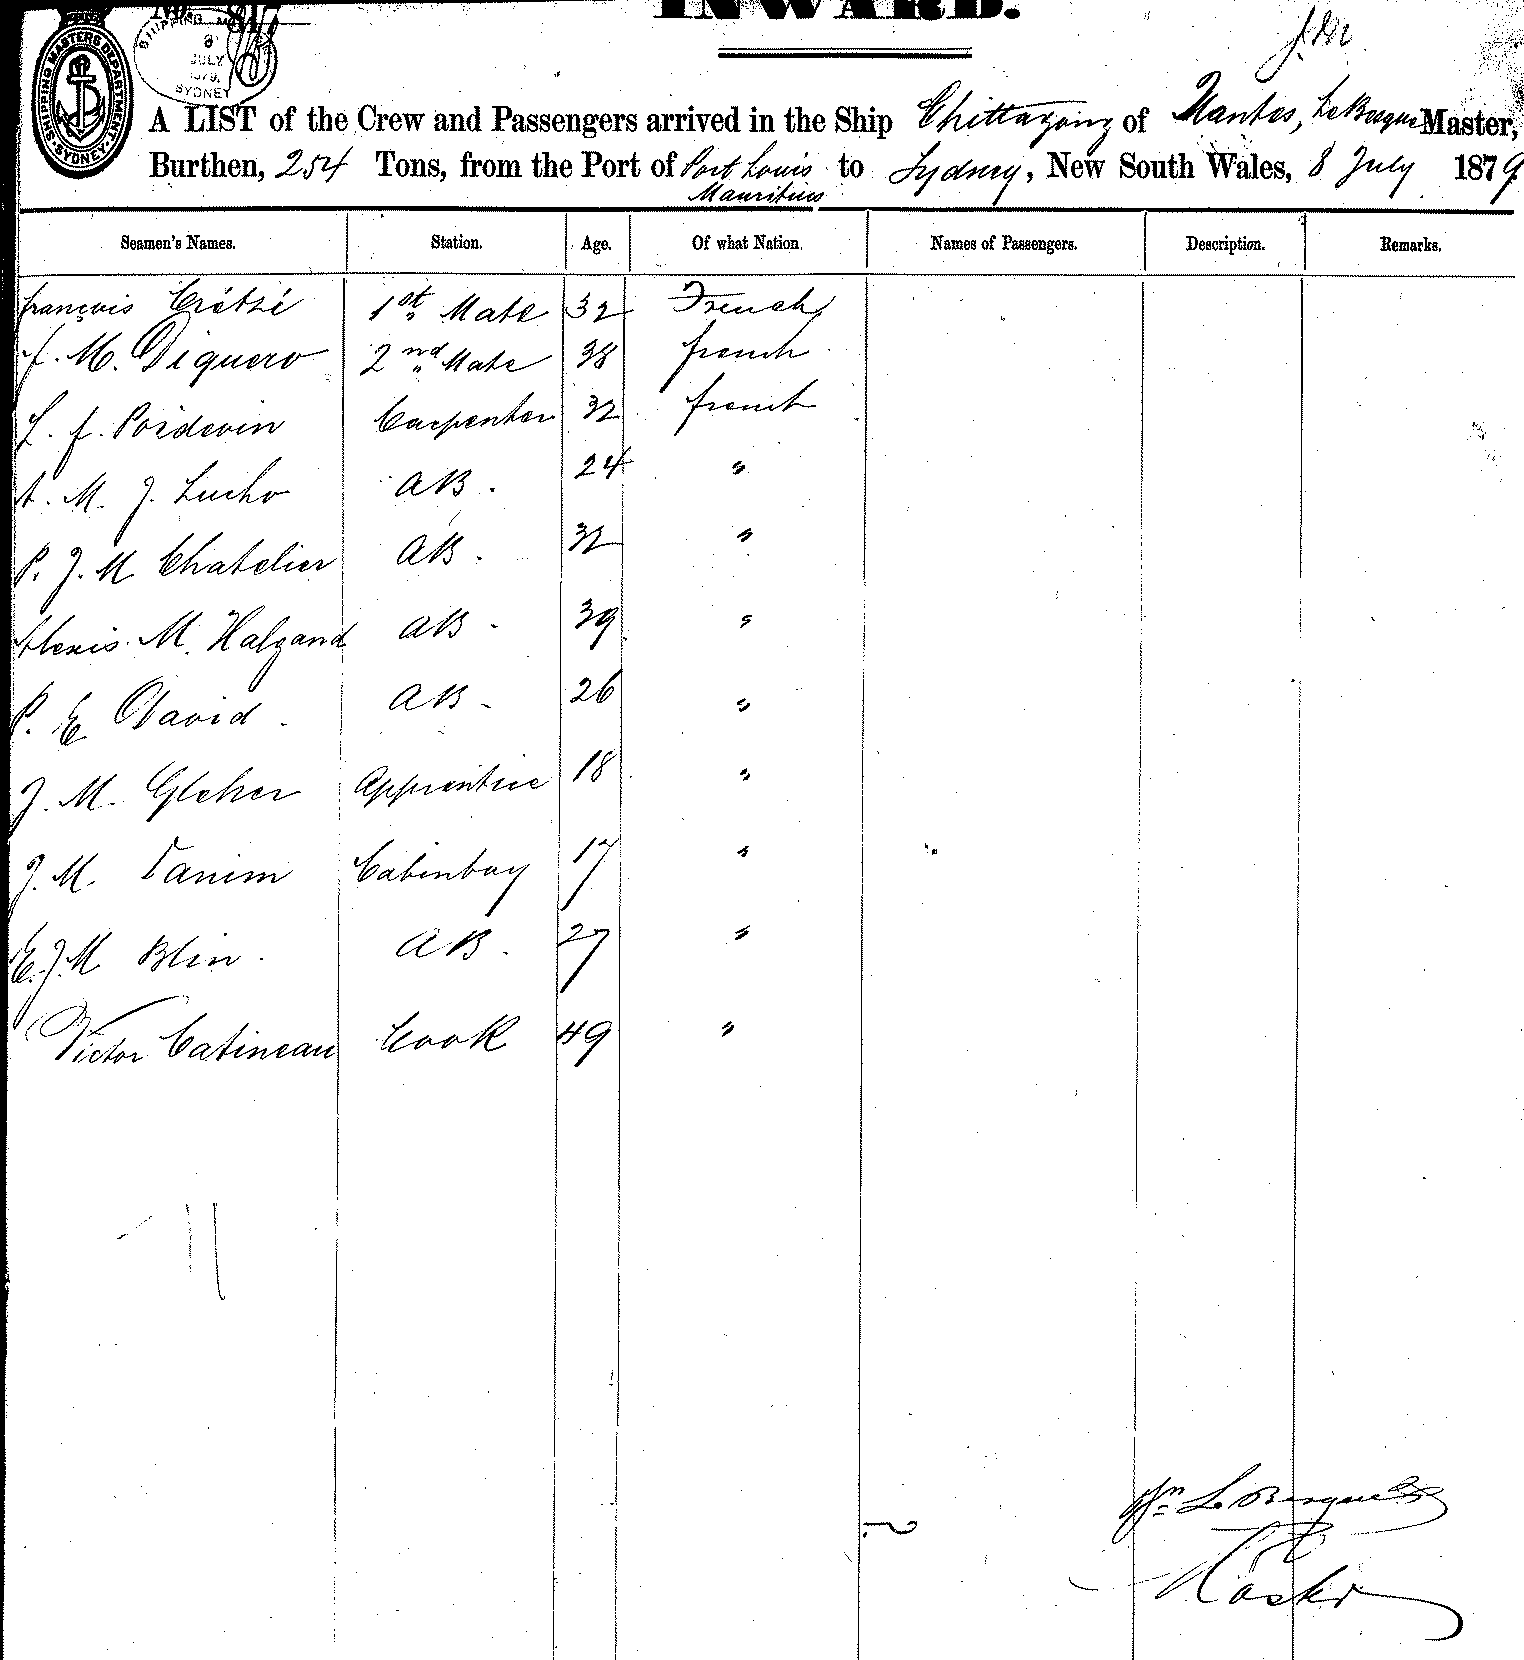 INWARD.
SHIPPING MASTERS DEPARTMENT SYDNEY
8 JULY 1879 SYDNEY
A LIST of the Crew and Passengers arrived in the Ship Chittagong of Nantes, Le Basque Master,
Burthen, 254 Tons, from the Port of Port Louis to Sydney, New South Wales, 8 July 1879
Mauritius
Seamen's Names. Station. Age. Of what Nation. Names of Passengers. Description. Remarks.
françois Crétzé 1st Mate 32 French
f. M. Diquero 2nd Mate 38 french
L. f. Poidevin Carpenter 32 french
A. M. J. Lucho AB. 24 "
P. J. M Chatelier AB. 32 "
Alexis M. Halgand AB - 39 "
P. E David AB - 26 "
J. M. Gleher Apprentice 18 "
J. M. Tanim Cabinboy 17 "
E. J. M Blin. AB. 27 "
Victor Catineau Cook 49 "
11
Le Basque